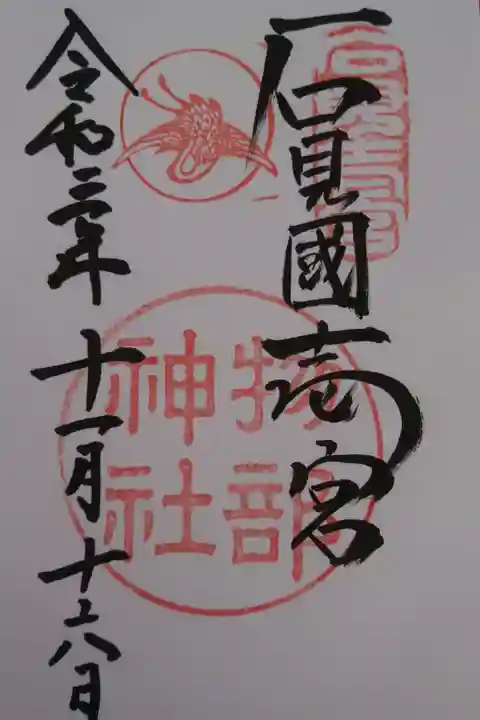 石見國壱宮
物部
神社
令和三年十一月十六日